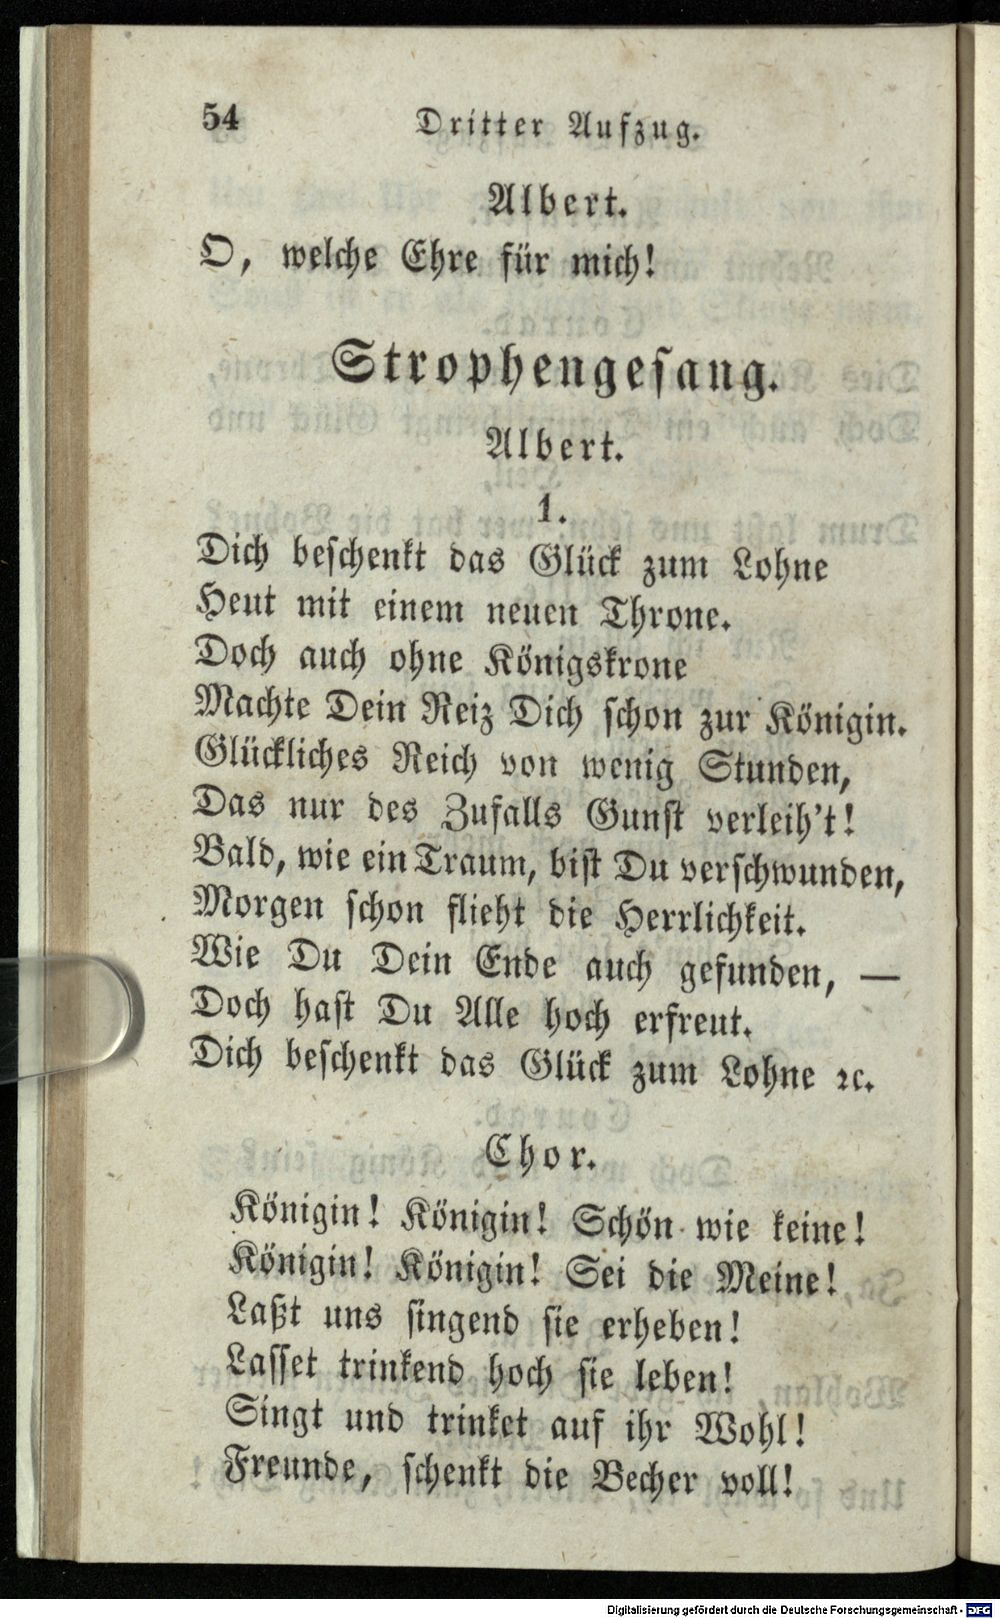 54 Dritter Aufzug.
Albert.
O, welche Ehre für mich!
Strophengesang.
Albert.
1.
Dich beschenkt das Glück zum Lohne
Heut mit einem neuen Throne.
Doch auch ohne Königskrone
Machte Dein Reiz Dich schon zur Königin.
Glückliches Reich von wenig Stunden,
Das nur des Zufalls Gunst verleih't!
Bald, wie ein Traum, bist Du verschwunden,
Morgen schon flieht die Herrlichkeit.
Wie Du Dein Ende auch gefunden, —
Doch hast Du Alle hoch erfreut.
Dich beschenkt das Glück zum Lohne ꝛc.
Chor.
Königin! Königin! Schön wie keine!
Königin! Königin! Sei die Meine!
Laßt uns singend sie erheben!
Lasset trinkend hoch sie leben!
Singt und trinket auf ihr Wohl!
Freunde, schenkt die Becher voll!
Digitalisierung gefördert durch die Deutsche Forschungsgemeinschaft - DFG